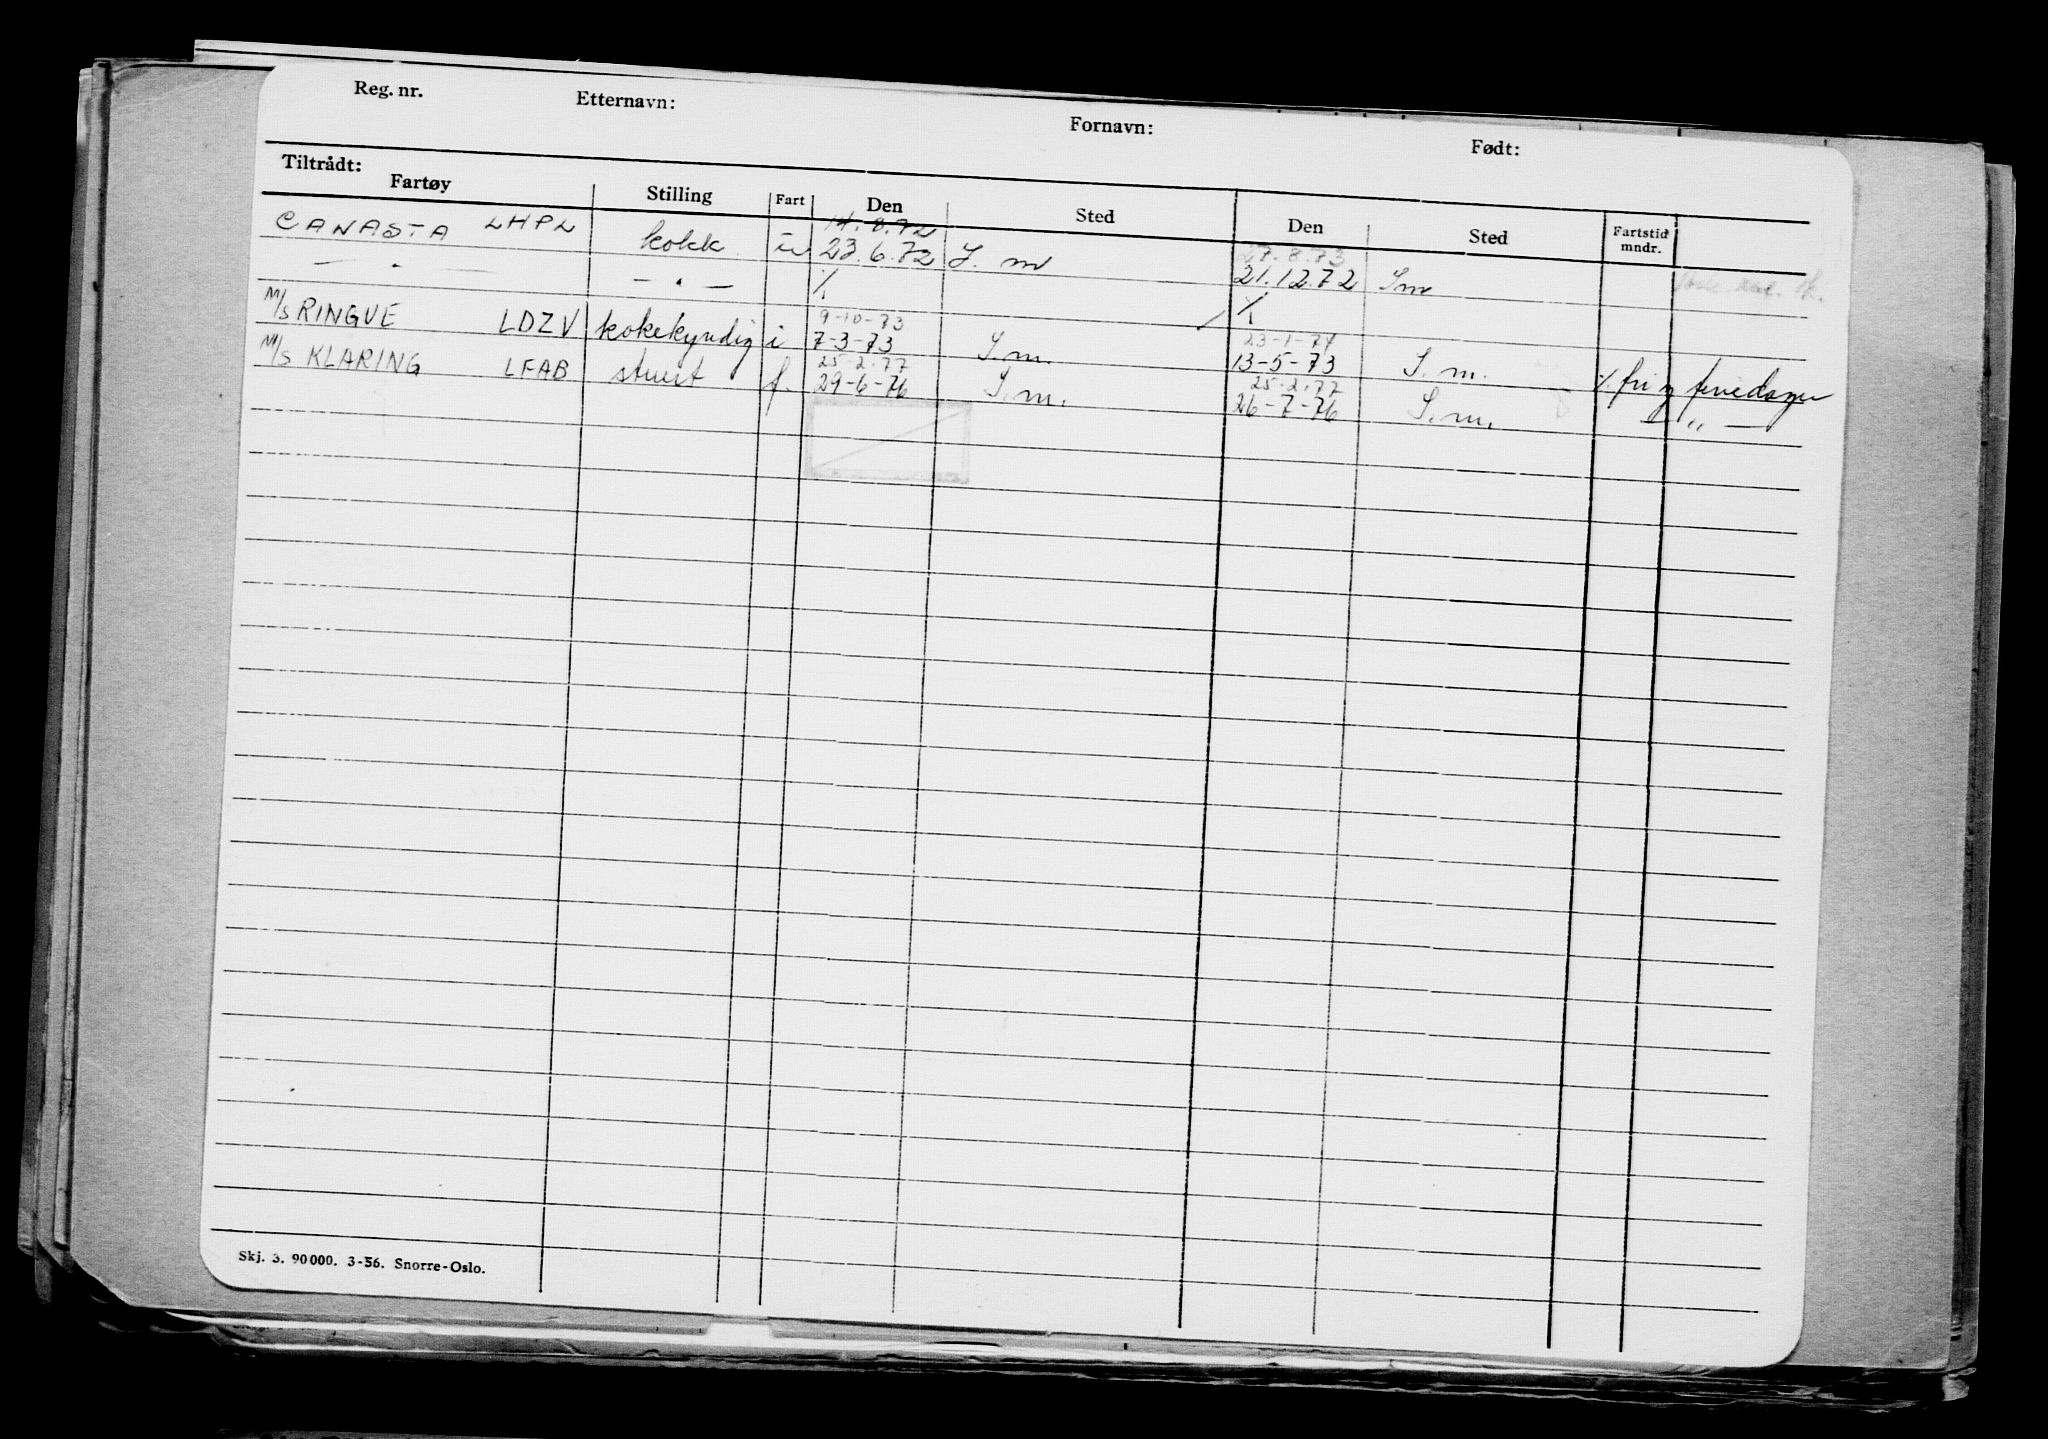 Reg. nr. Etternavn: Fornavn: Født:
Tiltrådt:
Fartøy Stilling Fart Den Sted Den Sted Fartstid mndr.
14.8.72 27.8.73
CANASTA LHPL kokk u 23.6.72 S. m 21.12.72 Sm
— " — — " — ٪ ٪
9-10-73 23-1-74
M/S RINGVE LDZV kokekyndig i 7-3-73 S.m. 13-5-73 S.m. ٪ fri og feriedager
25-2.77 25-2.77
M/S KLARING LFAB stuert f. 29-6-76 S.m. 26-7-76 S.m. — " —
Skj. 3. 90000. 3-56. Snorre-Oslo.